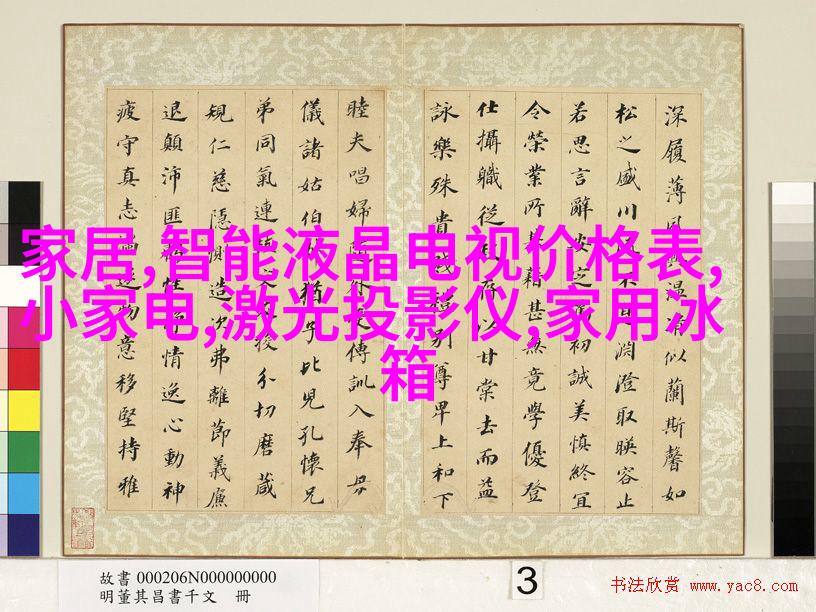 家居,智能液晶电视价格表,
小家电,激光投影仪,家用冰
箱
深履薄夙温凊似蘭斯馨如
松之盛川不息淵澄取暎容止
若思言辭安之初誠美慎終宜
令榮業所基藉甚無竟學優登
仕攝職從存以甘棠去而益
詠樂殊貴賤禮別尊卑上和下
睦夫唱婦隨外受傅訓入奉母
儀諸姑伯叔猶子比兒孔懷兄
弟同氣連枝交友投分切磨葴
規仁慈隱惻造次弗離節義廉
退顛沛匪虧性靜情逸心動神
疲守真志滿逐物意移堅持雅
故書 000206N000000000
明董其昌書千文 冊
3
书法欣赏 www.yac8.com